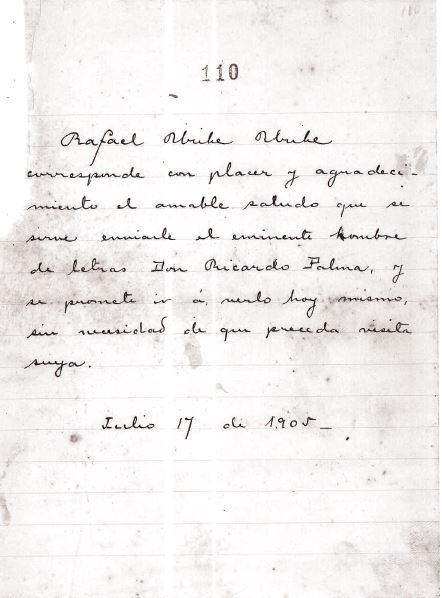 110
110
Rafael Uribe Uribe
corresponde con placer y agradeci-
miento el amable saludo que se
sirve enviarle el eminente hombre
de letras Don Ricardo Palma, y
se promete ir á verlo hoy mismo,
sin necesidad de que preceda visita
suya.
Julio 17 de 1905_